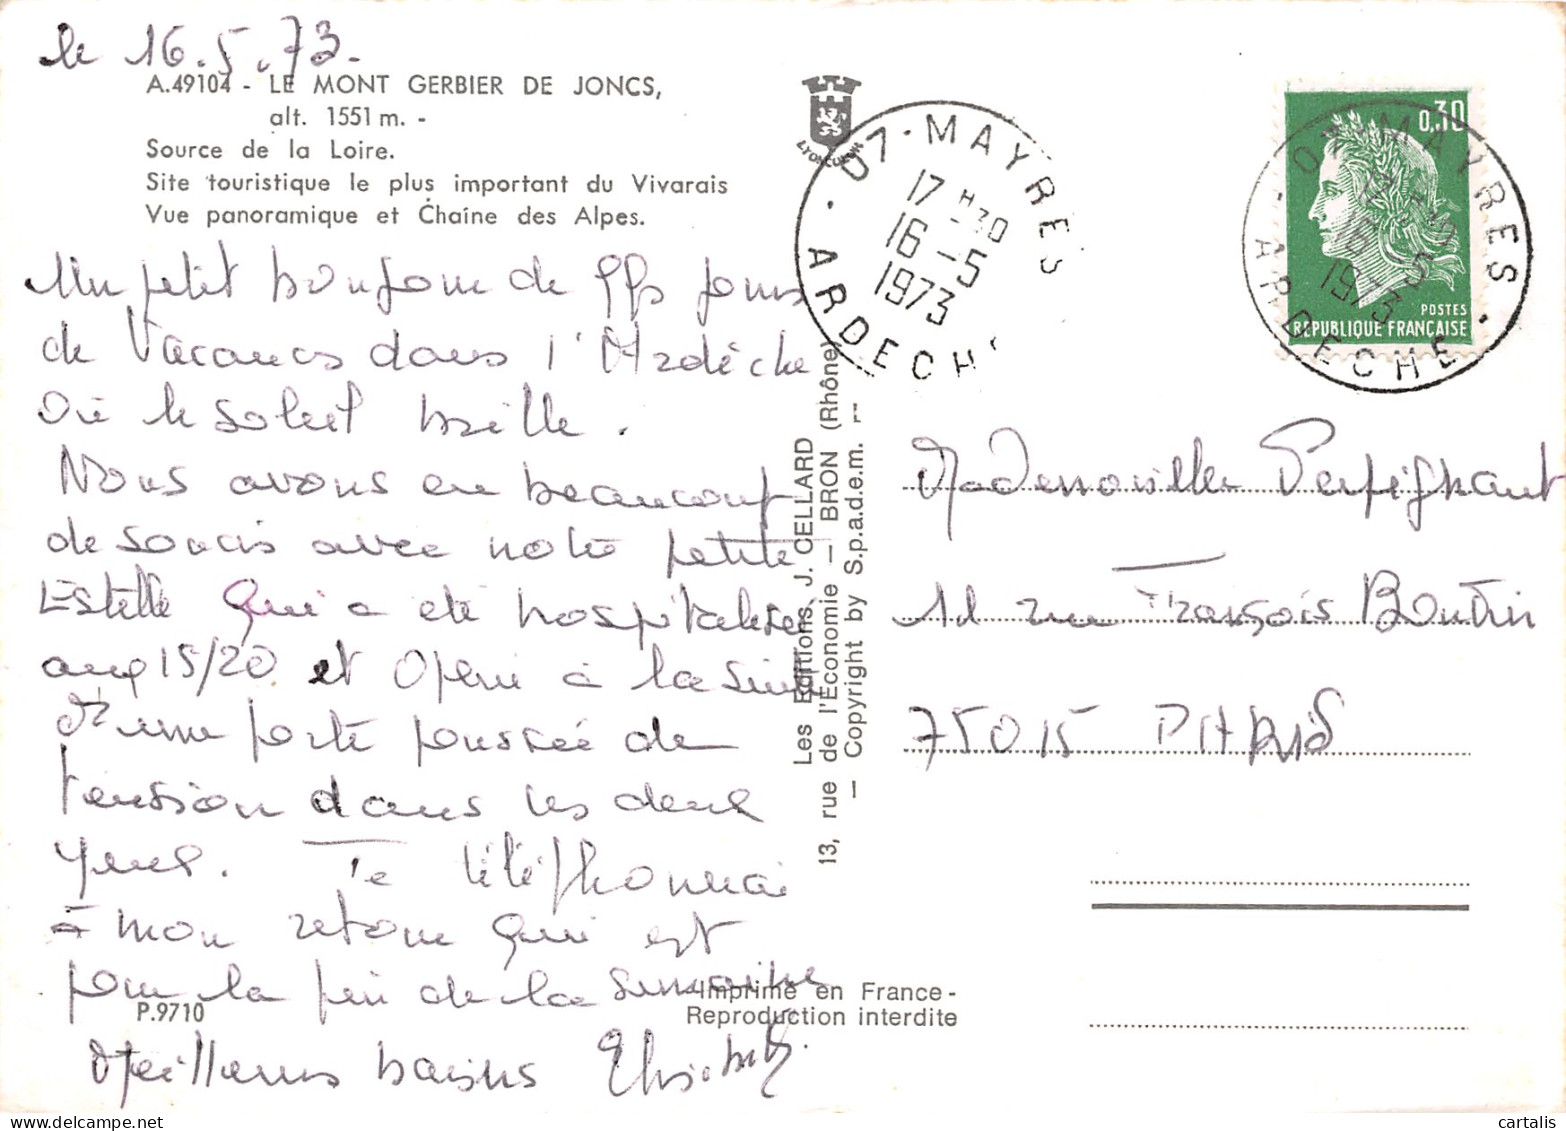 le 16.5.73.
A.49104 - LE MONT GERBIER DE JONCS,
alt. 1551 m. -
Source de la Loire.
Site touristique le plus important du Vivarais
Vue panoramique et Chaîne des Alpes.
Un petit bonjour de qqs jours
de Vacances dans l'Ardèche
Où le soleil brille.
Nous avons eu beaucoup
de soucis avec notre petite
Estelle qui a été hospitalisée
aux 15/20 et Opérée à la suite
d'une forte poussée de
tension dans les deux
yeux. Te téléphonerai
à mon retour qui est
pour la fin de la semaine
Meilleurs baisers Elisabeth.
P.9710
LYON
07 - MAYRES
17 H 30
16 - 5
1973
ARDECH
Les Editions J. CELLARD
13, rue de l'Economie - BRON (Rhône)
- Copyright by S.p.a.d.e.m. -
Imprimé en France -
Reproduction interdite
0,30
POSTES
REPUBLIQUE FRANÇAISE
07 - MAYRES
16 - 5
1973
ARDECHE
Mademoiselle Perpignant
11 rue François Boutrin
75015 PARIS
cartalis